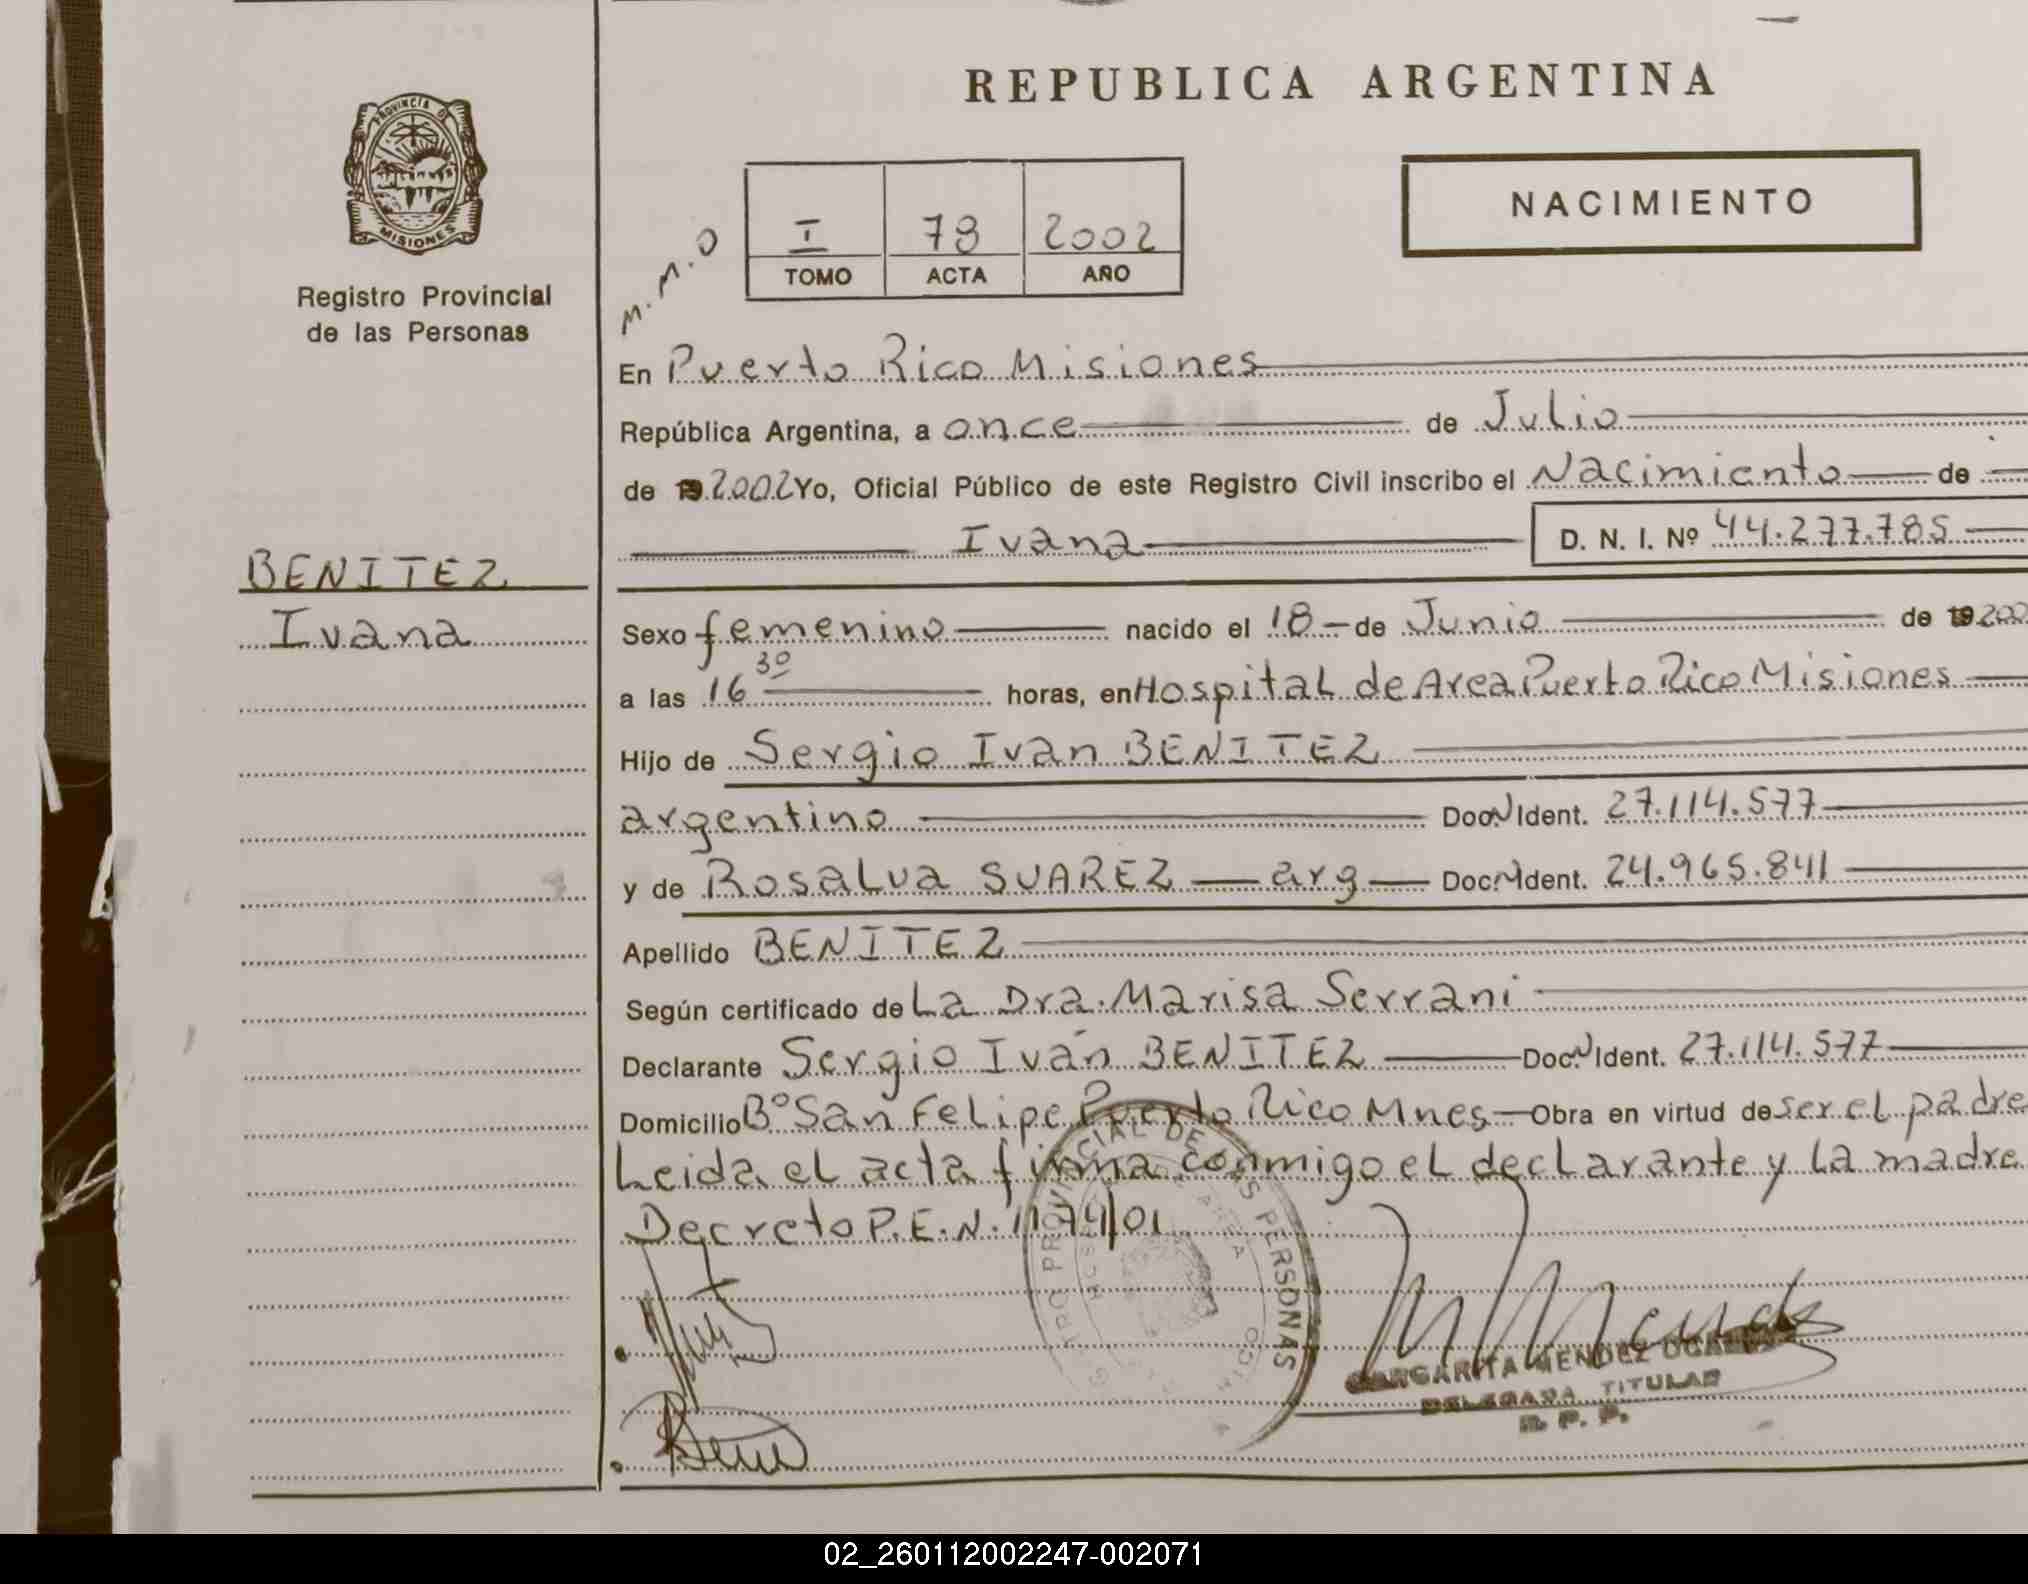 REPUBLICA ARGENTINA
PROVINCIA DE
MISIONES
Registro Provincial
de las Personas
NACIMIENTO
M.M.O
I 78 2002
TOMO ACTA AÑO
En Puerto Rico Misiones
República Argentina, a once de Julio
de 19 2002 Yo, Oficial Público de este Registro Civil inscribo el Nacimiento de
Ivana D. N. I. Nº 44.277.785
BENITEZ
Ivana
Sexo femenino nacido el 18 de Junio de 19 200
a las 16 30 horas, en Hospital de Area Puerto Rico Misiones
Hijo de Sergio Ivan BENITEZ
argentino Doc. N Ident. 27.114.577
y de Rosalva SUAREZ arg Doc. N Ident. 24.965.841
Apellido BENITEZ
Según certificado de La Dra. Marisa Serrani
Declarante Sergio Iván BENITEZ Doc. N Ident. 27.114.577
Domicilio Bº San Felipe Puerto Rico Mnes Obra en virtud de ser el padre
Leida el acta firma conmigo el declarante y la madre
Decreto P.E.N. 1174/01
PROVINCIAL DE LAS PERSONAS
MARGARITA MENDEZ
DELEGADA TITULAR
R. P. P.
02_260112002247-002071